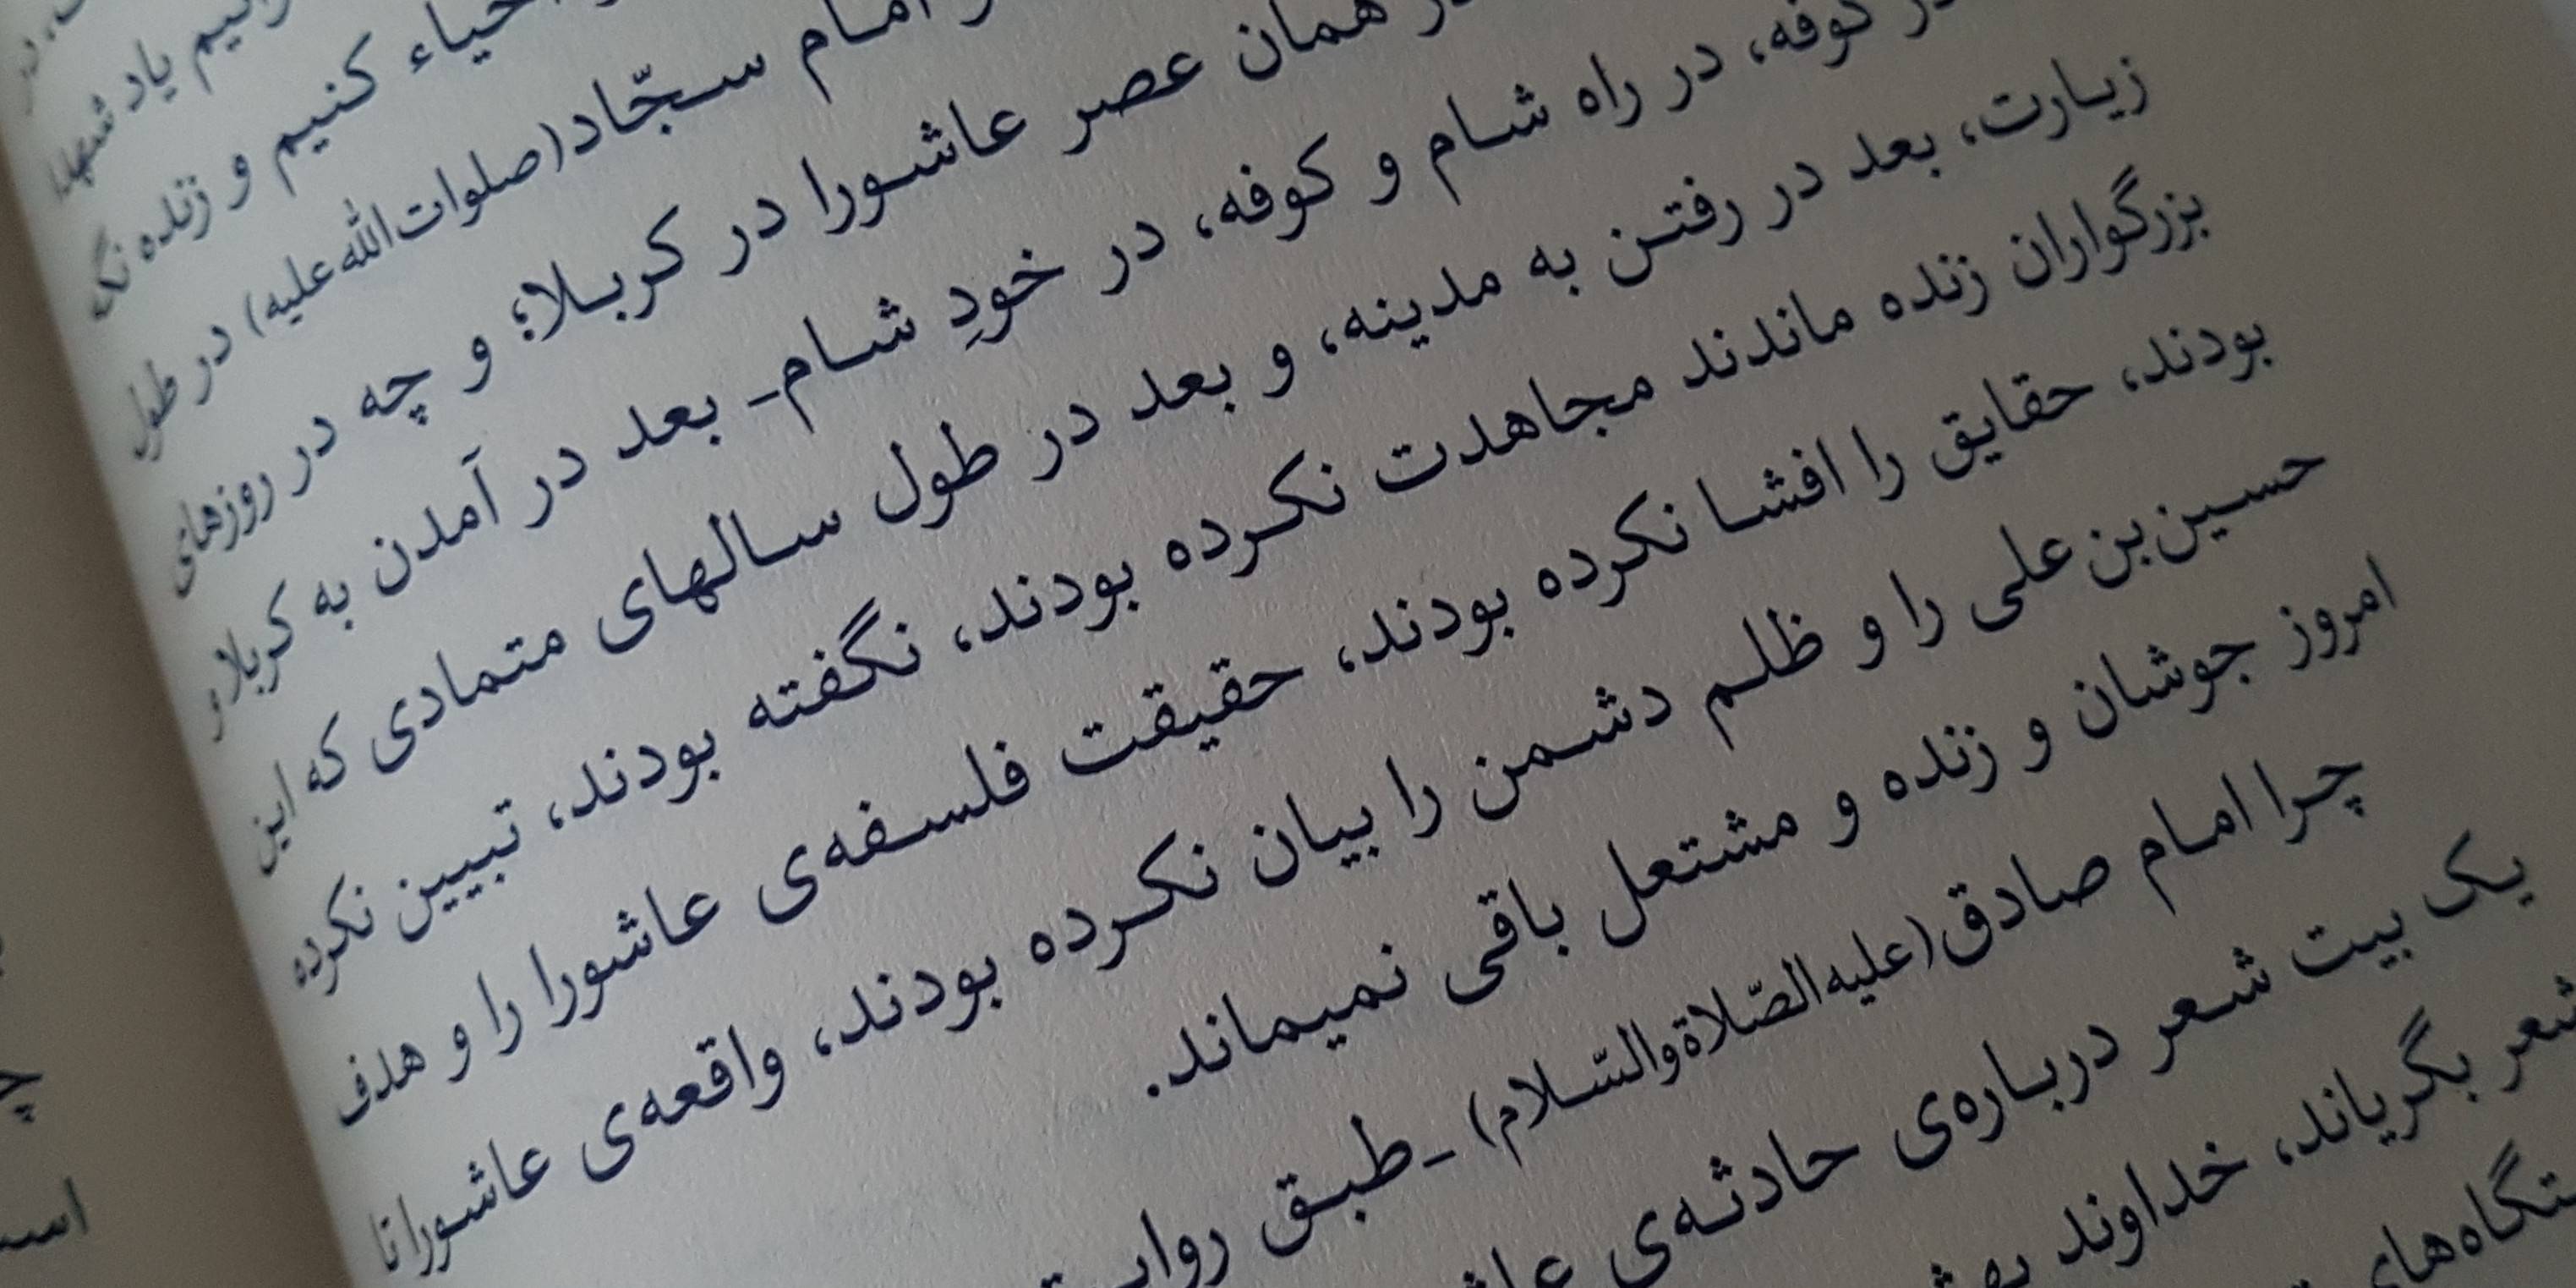 یاد شهدا
احیاء کنیم و زنده نگه
امام سجّاد(صلوات‌الله‌علیه) در طول
همان عصر عاشورا در کربلا؛ و چه در روزهای
در کوفه، در راه شام و کوفه، در خودِ شام- بعد در آمدن به کربلا و
زیارت، بعد در رفتن به مدینه، و بعد در طول سالهای متمادی که این
بزرگواران زنده ماندند مجاهدت نکرده بودند، نگفته بودند، تبیین نکرده
بودند، حقایق را افشا نکرده بودند، حقیقت فلسفه‌ی عاشورا را و هدف
حسین‌بن‌علی را و ظلم دشمن را بیان نکرده بودند، واقعه‌ی عاشورا تا
امروز جوشان و زنده و مشتعل باقی نمیماند.
چرا امام صادق(علیه‌الصّلاةوالسّلام) -طبق
یک بیت شعر درباره‌ی حادثه‌ی
شعر بگریاند، خداوند